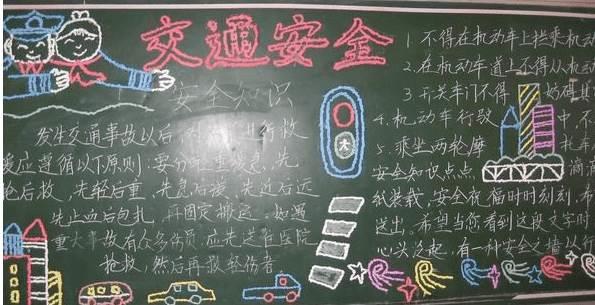 交通安全
安全知识
发生交通事故以后,对 进行救
援应遵循以下原则:要分 重缓急,先
抢后救,先轻后重,先急后缓,先近后远
先止血后包扎,再固定搬运。如遇
重大事故有众多伤员,应先送往医院
抢救,然后再救轻伤者。
大
1.不得在机动车上拦乘机动
2.在机动车道上不得从机动
3.开关车门不得 妨碍其
4.机动车行驶 中,不
5.乘坐两轮摩 托车
安全知识点点 滴滴
纸装载,安全祝福时时刻刻,希
送出。希望当您看到这段文字时
心头泛起,有一种安全之措以行